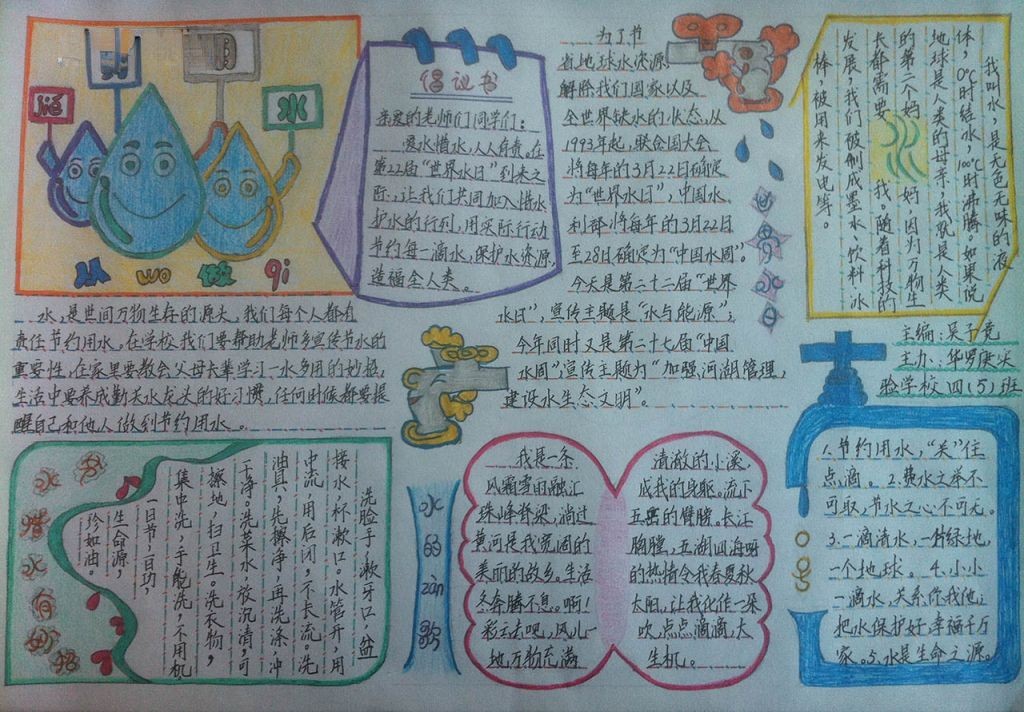 水
从 wo 做 qi
倡议书
亲爱的老师们同学们：
爱水惜水，人人有责。在
第22届“世界水日”到来之
际，让我们共同加入惜水
护水的行列，用实际行动
节约每一滴水，保护水资源，
造福全人类。
为了节
省地球水资源
解除我们国家以及
全世界缺水的状态，从
1993年起，联合国大会
将每年的3月22日确定
为“世界水日”，中国水
利部将每年的3月22日
至28日确定为“中国水周”。
今天是第二十二届“世界
水日”，宣传主题是“水与能源”；
今年同时又是第二十七届“中国
水周”宣传主题为“加强河湖管理，
建设水生态文明”。
我叫水，是无色无味的液
体，0℃时结冰，100℃时沸腾。如果说
地球是人类的母亲，我就是人类
的第二个妈妈，因为万物生
长都需要我。随着科技的
发展，我们被制成墨水、饮料、冰
棒，被用来发电等。
主编：吴子竞
主办：华罗庚实
验学校四（5）班
水，是世间万物生存的源头，我们每个人都有
责任节约用水。在学校我们要帮助老师多宣传节水的
重要性，在家里要教会父母长辈学习一水多用的妙招，
生活中要养成勤关水龙头的好习惯，任何时候都要提
醒自己和他人做到节约用水。
洗脸手，漱牙口，盆
接水，杯漱口。水管开，用
中流，用后闭，不长流。洗
油具，先擦净，再洗涤，冲
干净。洗菜水，放沉清，可
擦地，扫卫生。洗衣物，
集中洗，手能洗，不用机
一日节，一日功，
生命源，
珍如油。
水的zàn歌
我是一条
风霜雪雨融汇
珠峰脊梁，淌过
黄河是我宽阔的
美丽的故乡。生活
冬奔腾不息。啊！
彩云去吧，风儿一
地，万物充满
清澈的小溪，
成我的身躯。流下
五岳的臂膀。长江
胸膛，五湖四海呀
的热情令我春夏秋
太阳，让我化作一朵
吹，点点滴滴，大
生机。
1.节约用水，“关”住
点滴。2.费水之举不
可取，节水之心不可无。
3.一滴清水，一片绿地，
一个地球。4.小小
一滴水，关系你我他；
把水保护好，幸福千万
家。5.水是生命之源。